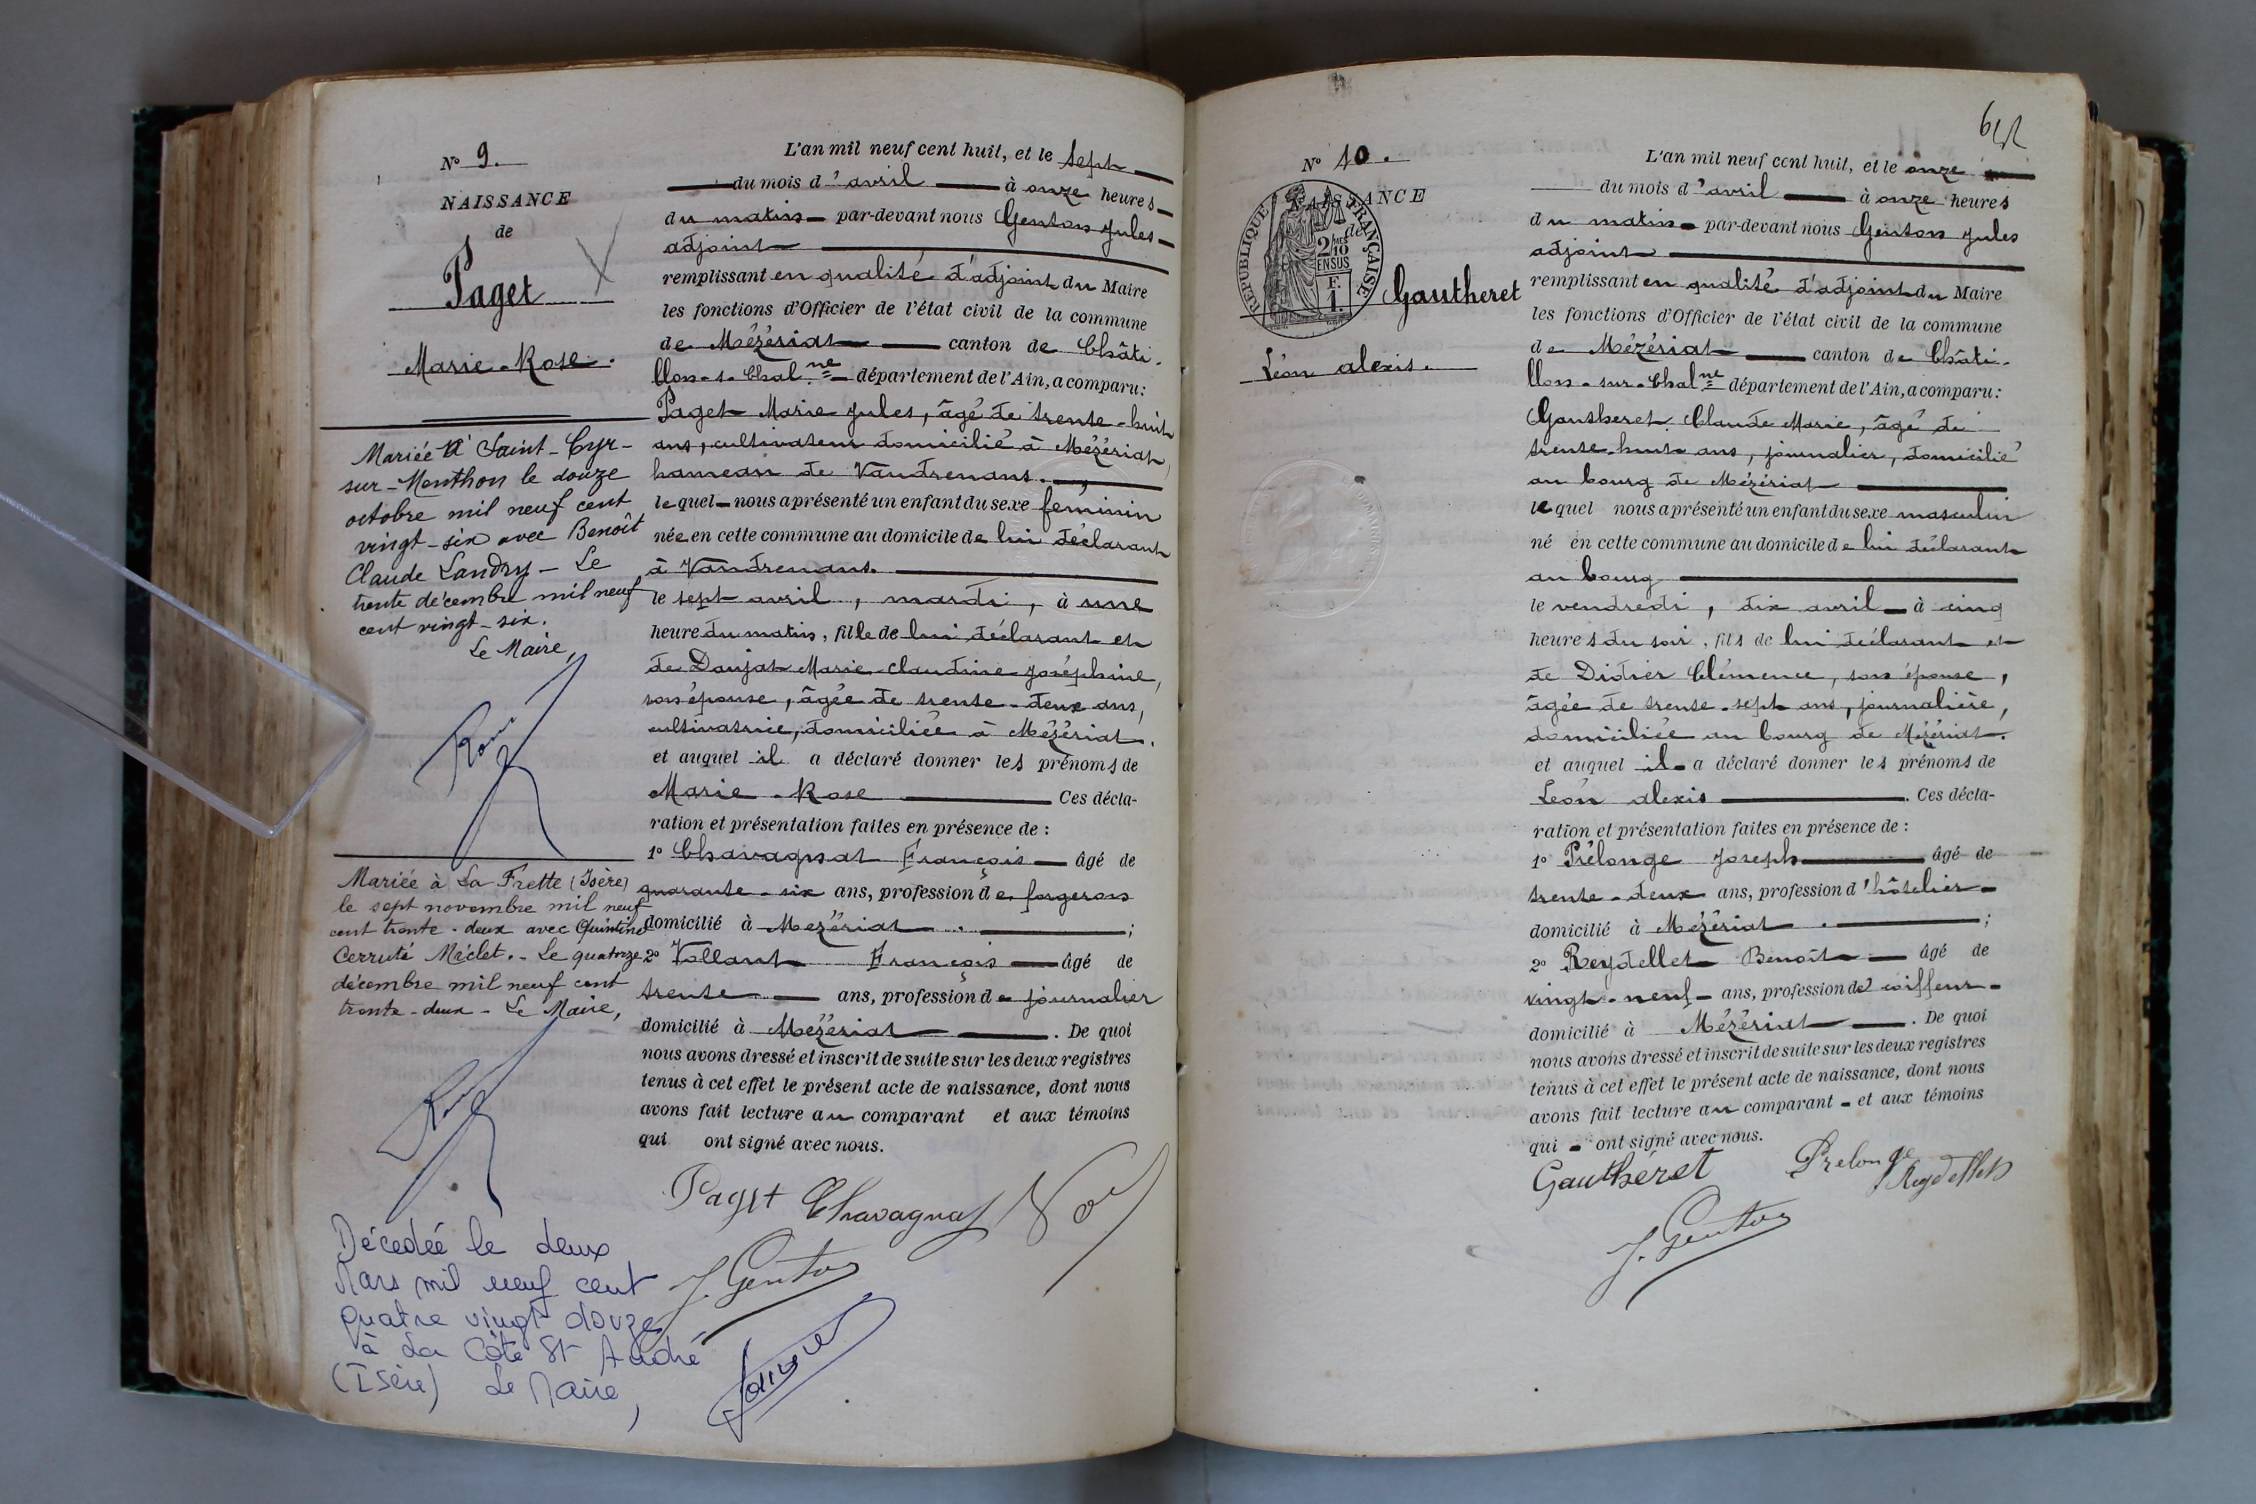 N° 9.
NAISSANCE
de
Paget
Marie-Rose.
Mariée à Saint-Cyr-
sur-Menthon le douze
octobre mil neuf cent
vingt-six avec Benoît
Claude Landry - Le
trente décembre mil neuf
cent vingt-six.
Le Maire,
Mariée à La Frette (Isère)
le sept novembre mil neuf
cent trente-deux avec Quintino
Cerruté Méclet. - Le quatorze
décembre mil neuf cent
trente-deux - Le Maire,
Décedée le deux
Mars mil neuf cent
quatre vingt douze
à La Côte St André
(Isère) Le Maire,
L'an mil neuf cent huit, et le sept
du mois d'avril à onze heures
du matin par-devant nous Genton Jules
adjoint
remplissant en qualité d'adjoint du Maire
les fonctions d'Officier de l'état civil de la commune
de Mézériat canton de Châti-
llon-s-Chalne département de l'Ain, a comparu:
Paget Marie Jules, âgé de trente-huit
ans, cultivateur domicilié à Mézériat,
hameau de Vandrenans.
lequel nous a présenté un enfant du sexe feminin
née en cette commune au domicile de lui déclarant
à Vandrenans.
le sept avril, mardi, à une
heure du matin, fille de lui déclarant et
de Daujat Marie-Claudine Joséphine,
son épouse, âgée de trente-deux ans,
cultivatrice, domiciliée à Mézériat.
et auquel il a déclaré donner les prénoms de
Marie-Rose Ces décla-
ration et présentation faites en présence de :
1° Chavagnat François âgé de
quarante-six ans, profession de forgeron
domicilié à Mézériat. ;
2° Vollant François âgé de
trente ans, profession de journalier
domicilié à Mézériat . De quoi
nous avons dressé et inscrit de suite sur les deux registres
tenus à cet effet le présent acte de naissance, dont nous
avons fait lecture au comparant et aux témoins
qui ont signé avec nous.
Paget Chavagnat
J. Genton
N° 10.
NAISSANCE
de
RÉPUBLIQUE FRANÇAISE
2/10 MES
EN SUS
F.
1.
Gautheret
Léon alexis.
L'an mil neuf cent huit, et le onze
du mois d'avril à onze heures
du matin par-devant nous Genton Jules
adjoint
remplissant en qualité d'adjoint du Maire
les fonctions d'Officier de l'état civil de la commune
de Mézériat canton de Châti-
llon-sur-Chalne département de l'Ain, a comparu:
Gautheret Claude Marie, âgé de
trente-huit ans, journalier, domicilié
au bourg de Mézériat
lequel nous a présenté un enfant du sexe masculin
né en cette commune au domicile de lui déclarant
au bourg
le vendredi, dix avril à cinq
heures du soir, fils de lui déclarant et
de Didier Clémence, son épouse,
âgée de trente-sept ans, journalière,
domiciliée au bourg de Mézériat.
et auquel il a déclaré donner les prénoms de
Léon alexis . Ces décla-
ration et présentation faites en présence de :
1° Prélonge Joseph âgé de
trente-deux ans, profession d'hôtelier
domicilié à Mézériat. ;
2° Reydellet Benoît âgé de
vingt-neuf ans, profession de coiffeur
domicilié à Mézériat . De quoi
nous avons dressé et inscrit de suite sur les deux registres
tenus à cet effet le présent acte de naissance, dont nous
avons fait lecture au comparant et aux témoins
qui ont signé avec nous.
Gauthéret Prelonge
Reydellet
J. Genton